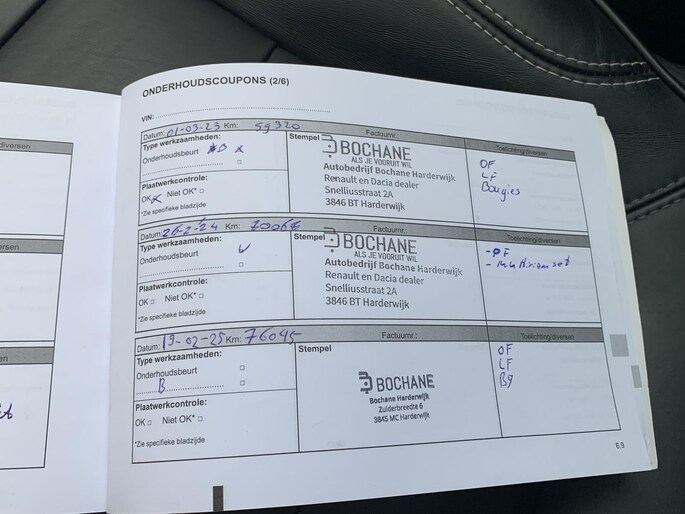 ONDERHOUDSCOUPONS (2/6)
VIN:
Datum: 01-03-23 Km: 59320
Factuurnr.:
Toelichting/diversen
Type werkzaamheden:
Onderhoudsbeurt B x
Plaatwerkcontrole:
OK x Niet OK* □
*Zie specifieke bladzijde
Stempel
BOCHANE
ALS JE VOORUIT WIL
Autobedrijf Bochane Harderwijk
Renault en Dacia dealer
Snelliusstraat 2A
3846 BT Harderwijk
OF
LF
Bougies
Datum: 26-2-'24 Km:
Factuurnr.:
Toelichting/diversen
Type werkzaamheden:
Onderhoudsbeurt ✓
Plaatwerkcontrole:
OK □ Niet OK* □
*Zie specifieke bladzijde
Stempel
BOCHANE
ALS JE VOORUIT WIL
Autobedrijf Bochane Harderwijk
Renault en Dacia dealer
Snelliusstraat 2A
3846 BT Harderwijk
Datum: 19-02-25 Km: 76045
Factuurnr.:
Toelichting/diversen
Type werkzaamheden:
Onderhoudsbeurt □
B □
Plaatwerkcontrole:
OK □ Niet OK* □
*Zie specifieke bladzijde
Stempel
BOCHANE
Bochane Harderwijk
Zuiderbreedte 6
3845 MC Harderwijk
OF
LF
6.9